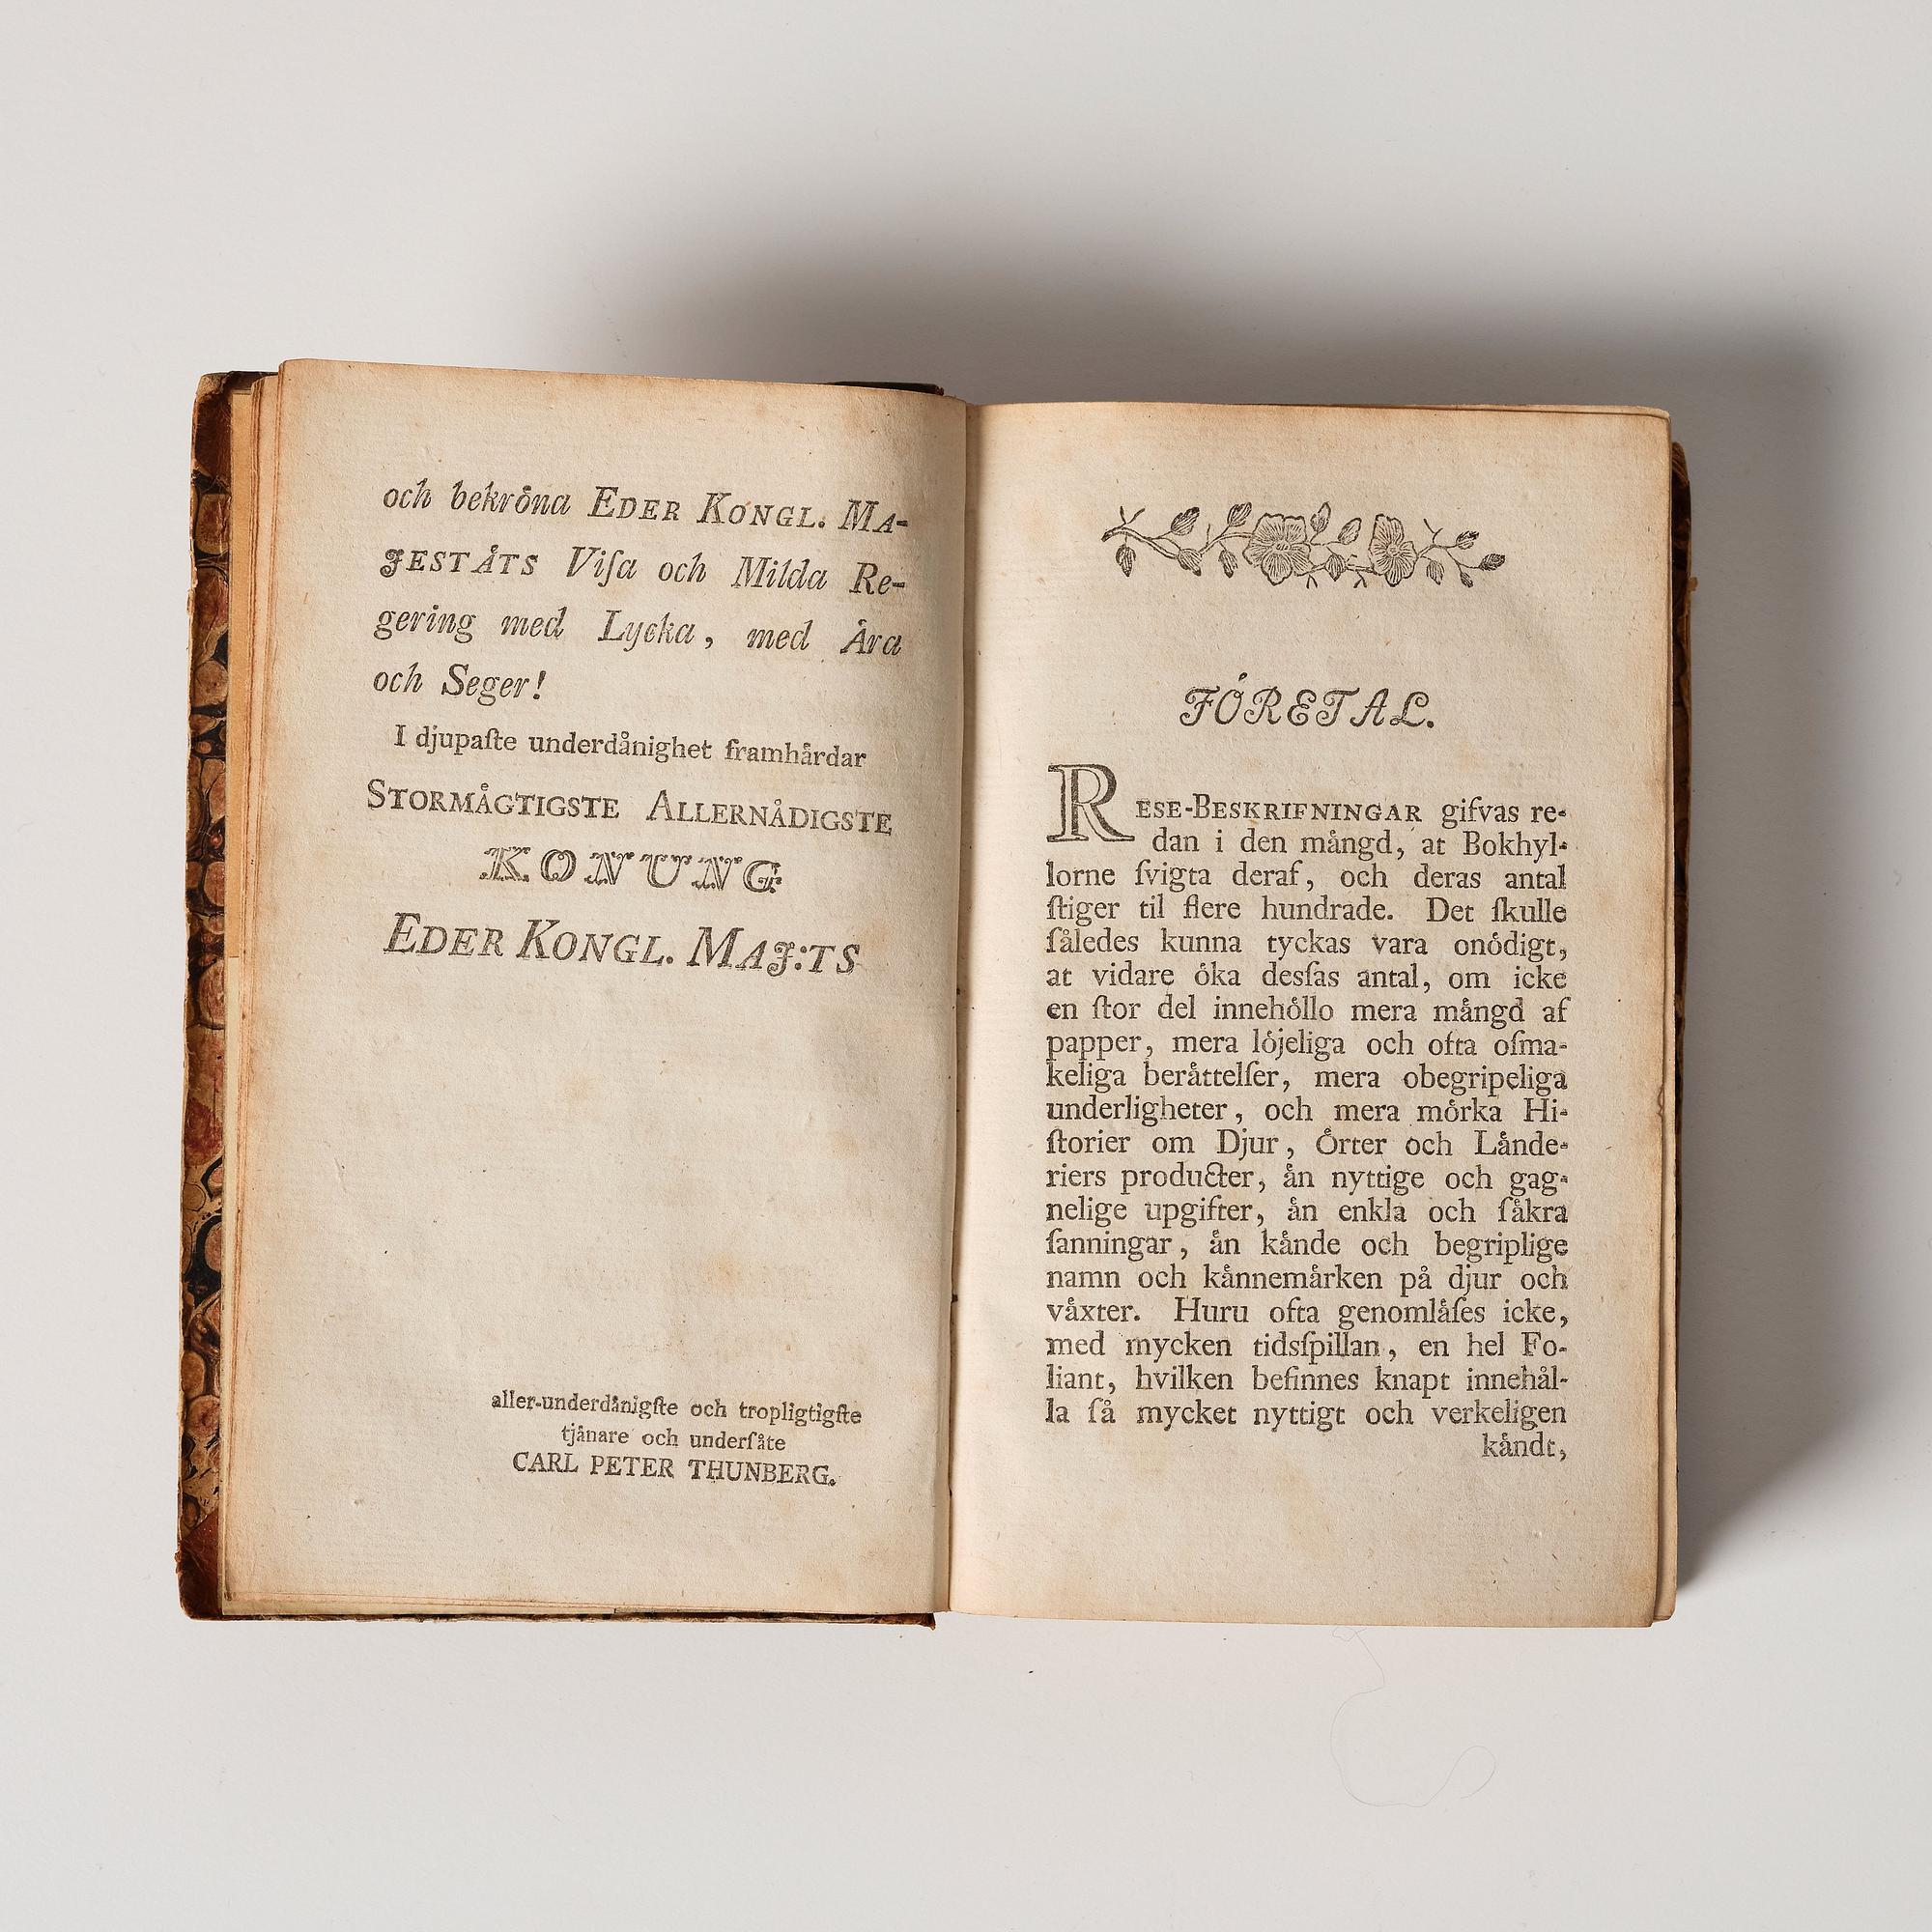 och bekröna EDER KONGL. MA-
JESTÄTS Viſa och Milda Re-
gering med Lycka, med Ära
och Seger!
I djupaſte underdånighet framhärdar
STORMÄGTIGSTE ALLERNÅDIGSTE
KONUNG
EDER KONGL. MAJ:TS
aller-underdånigſte och tropligtigſte
tjänare och underſåte
CARL PETER THUNBERG.
FÖRETAL.
RESE-BESKRIFNINGAR gifvas re-
dan i den mängd, at Bokhyl-
lorne ſvigta deraf, och deras antal
ſtiger til flere hundrade. Det ſkulle
ſåledes kunna tyckas vara onödigt,
at vidare öka desſas antal, om icke
en ſtor del innehöllo mera mängd af
papper, mera löjeliga och ofta oſma-
keliga berättelſer, mera obegripeliga
underligheter, och mera mörka Hi-
ſtorier om Djur, Örter och Lände-
riers producter, än nyttige och gag-
nelige upgifter, än enkla och ſäkra
ſanningar, än kände och begriplige
namn och kännemärken på djur och
växter. Huru ofta genomläſes icke,
med mycken tidsſpillan, en hel Fo-
liant, hvilken befinnes knapt innehål-
la ſå mycket nyttigt och verkeligen
kändt,